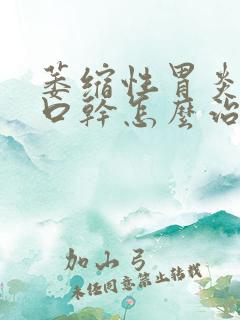 萎缩性胃炎
口幹怎麽治
加小弓
未经同意禁止转载